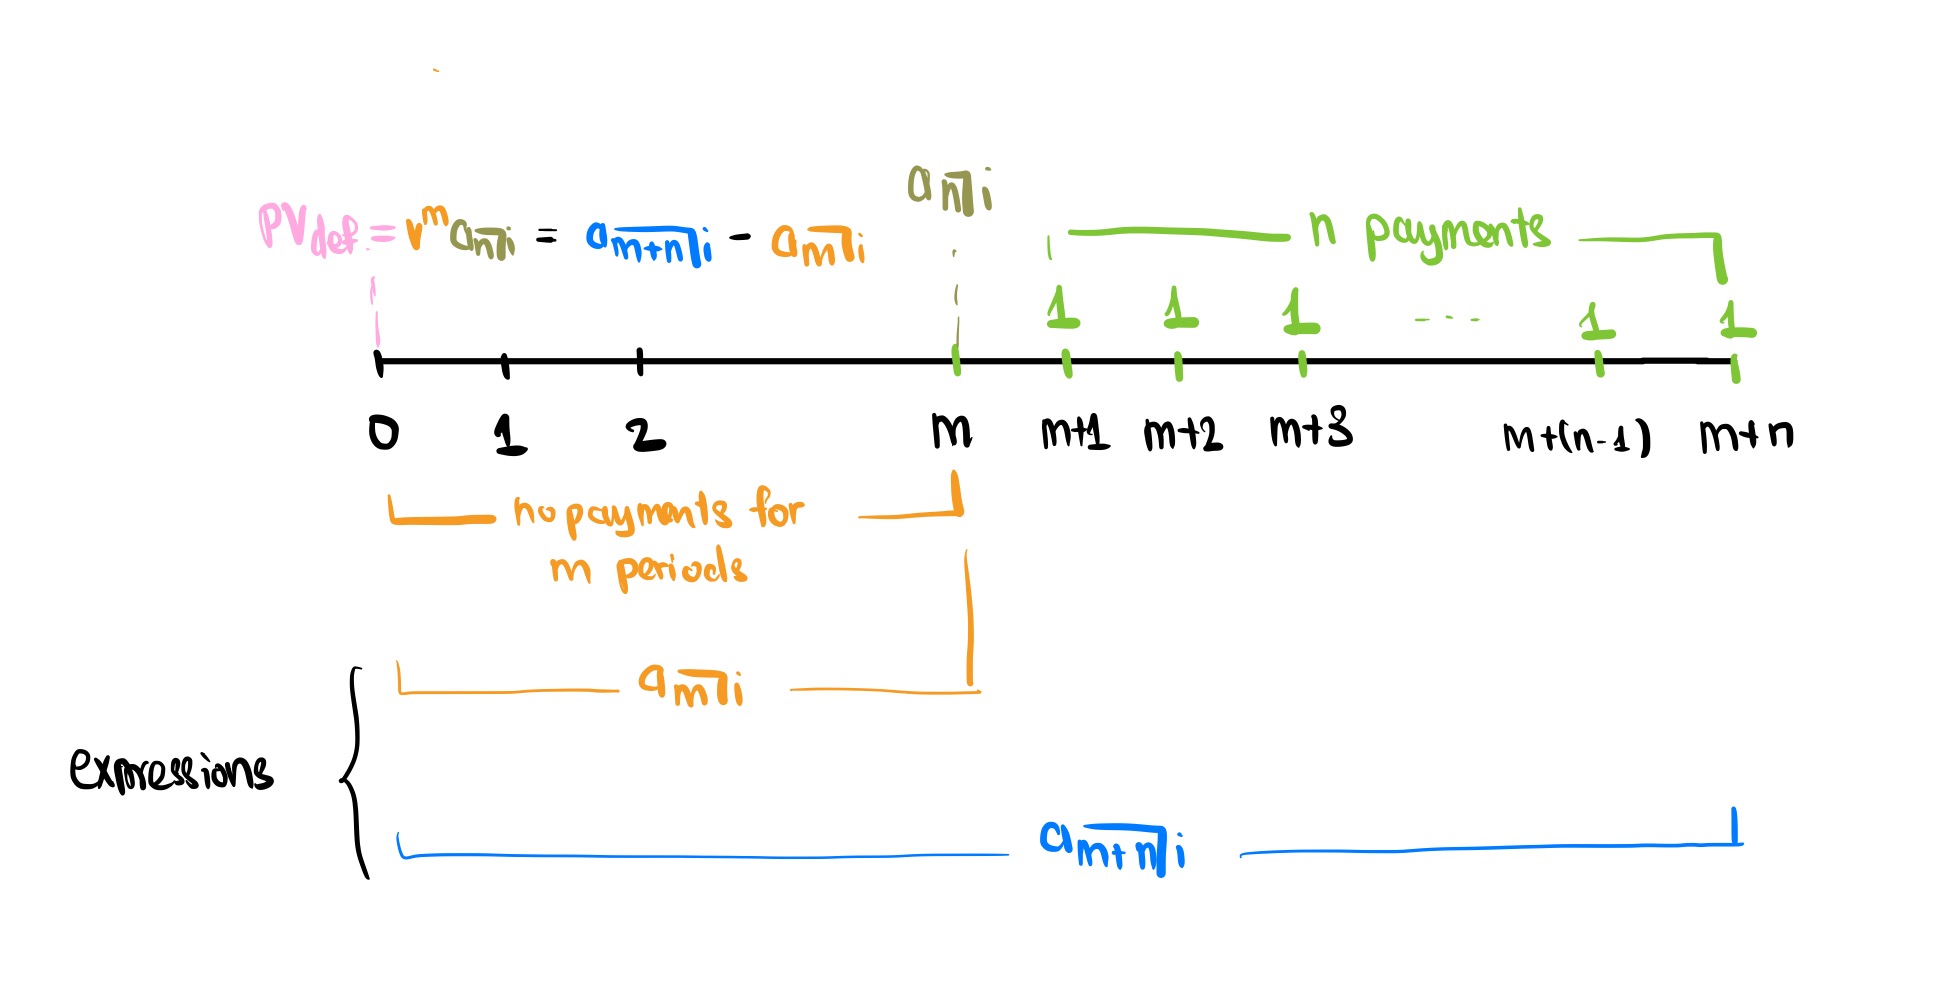 a_{\overline{n}|i}
PV_{def.} = v^m a_{\overline{n}|i} = a_{\overline{m+n}|i} - a_{\overline{m}|i}
n payments
1 1 1 ... 1 1
0 1 2 m m+1 m+2 m+3 m+(n-1) m+n
no payments for
m periods
a_{\overline{m}|i}
expressions
a_{\overline{m+n}|i}